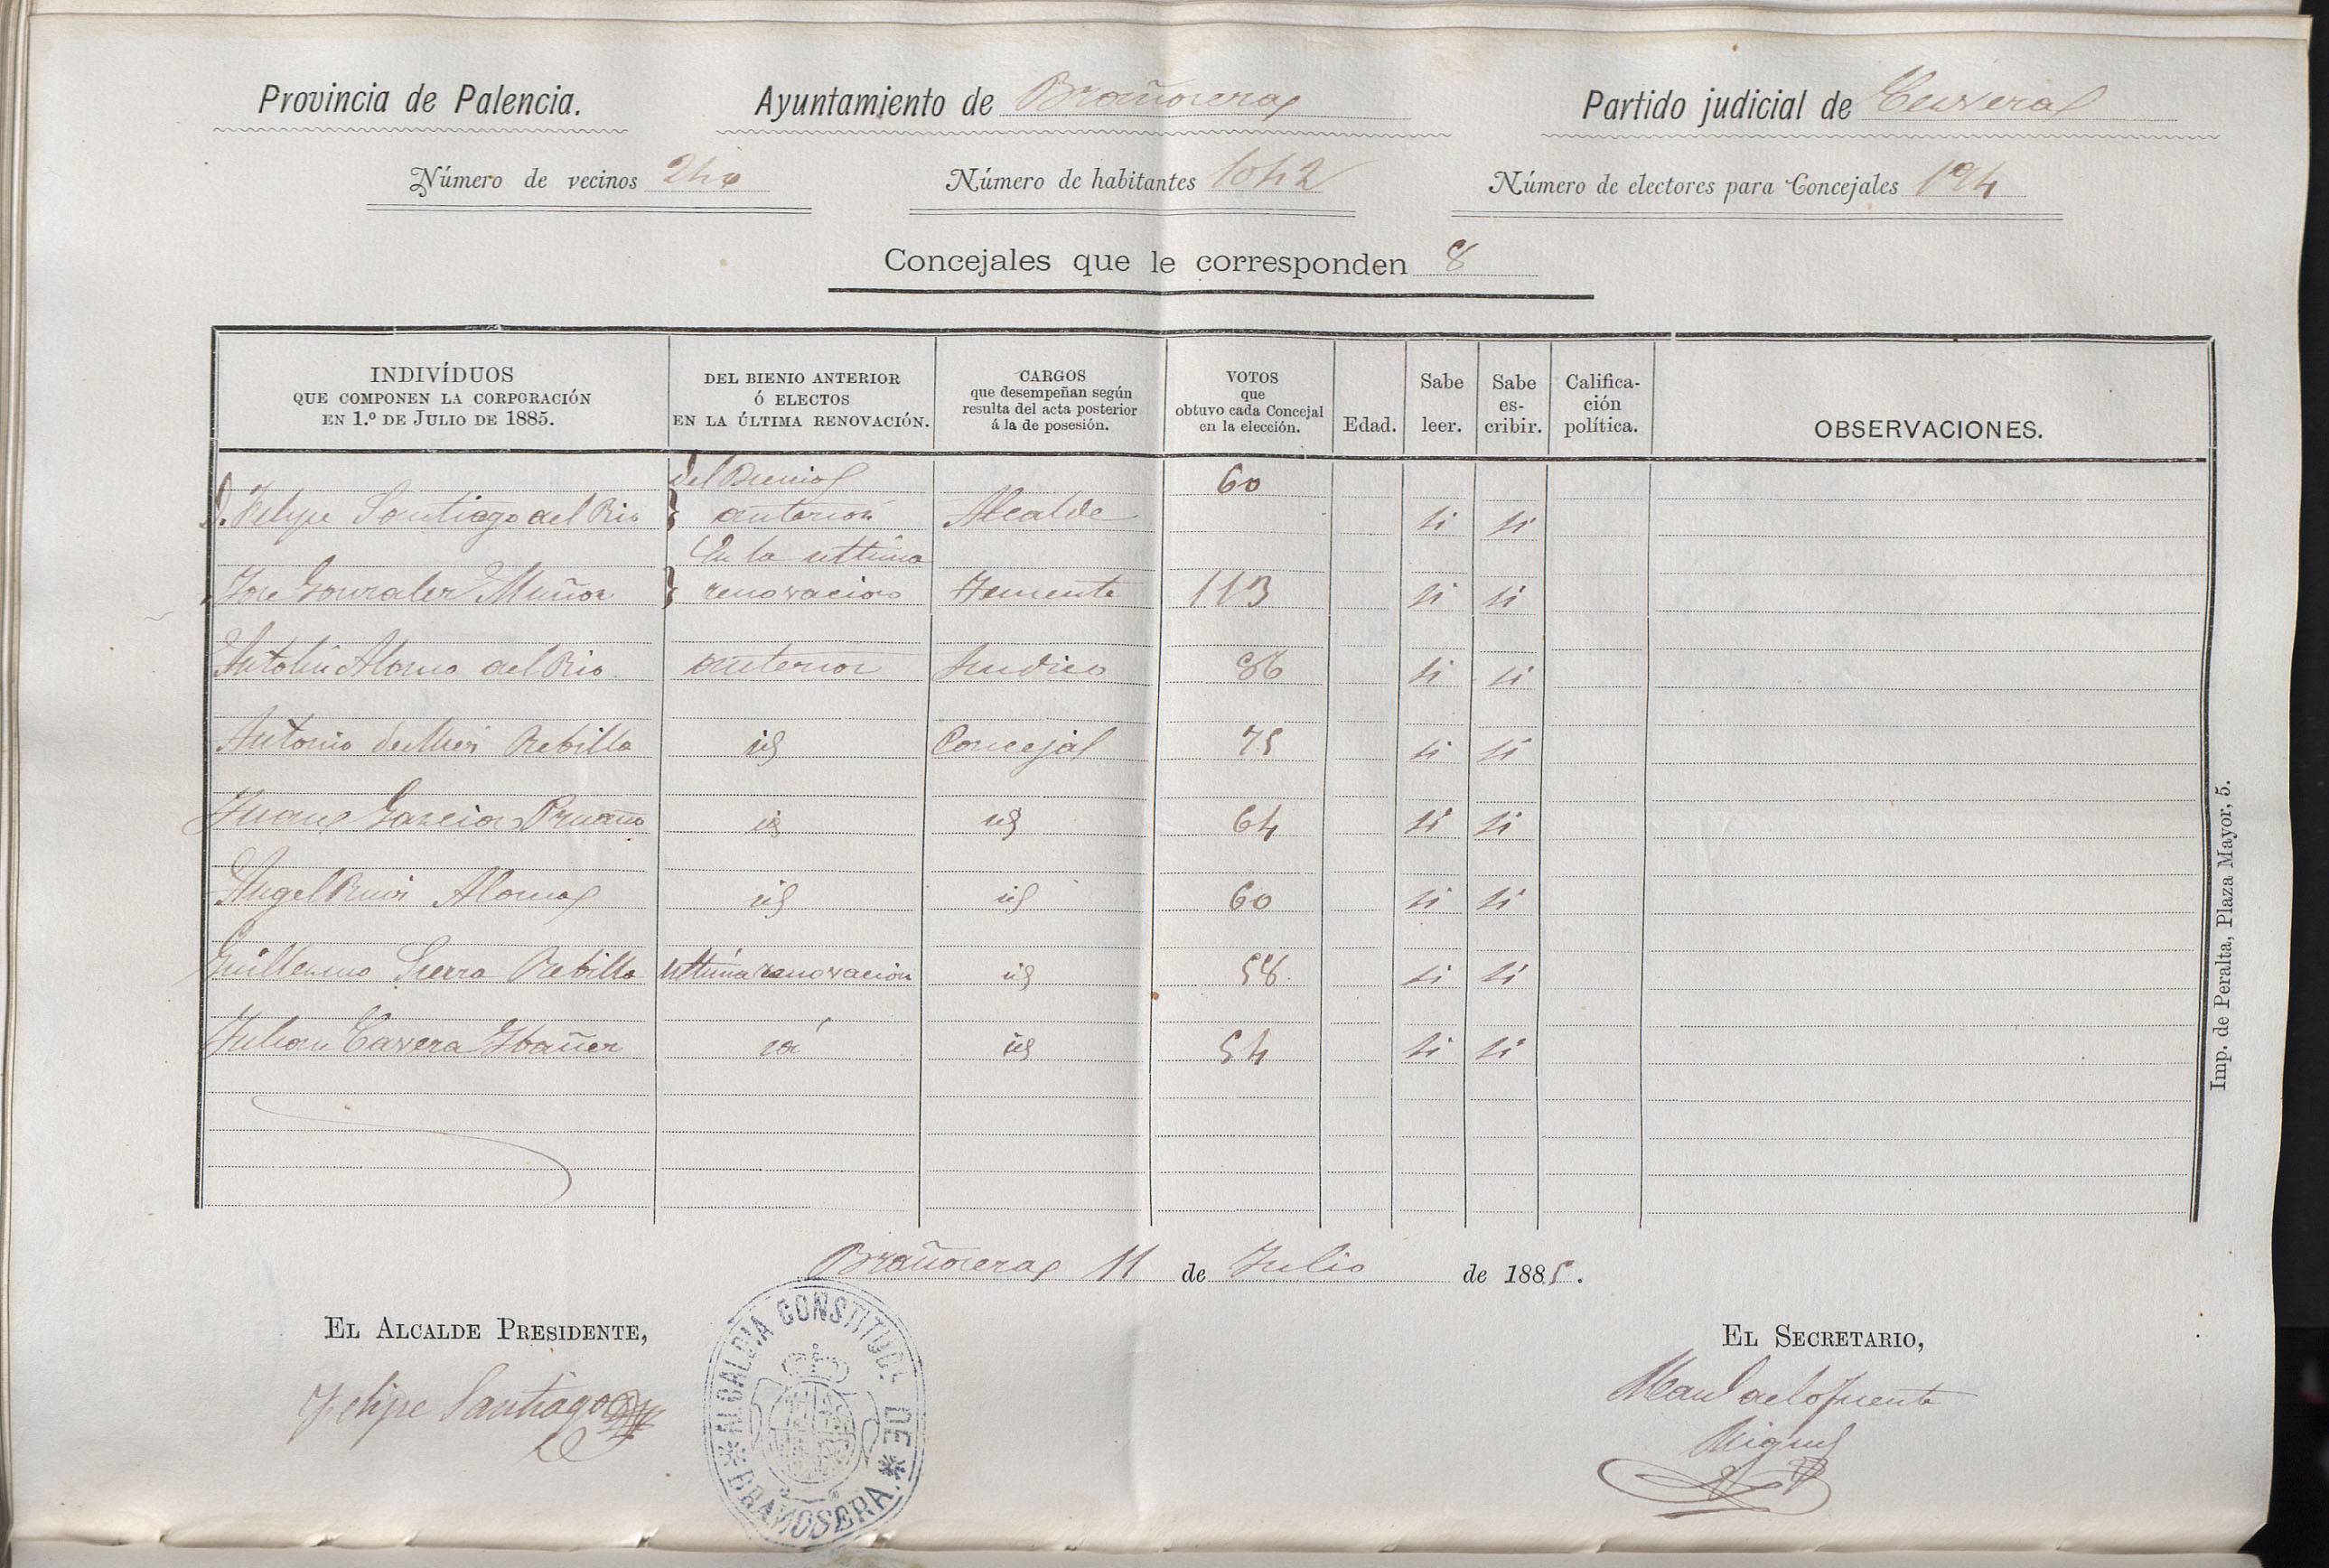 Provincia de Palencia. Ayuntamiento de Brañosera Partido judicial de Cervera
Número de vecinos 240 Número de habitantes 1042 Número de electores para Concejales 194
Concejales que le corresponden 8
INDIVÍDUOS QUE COMPONEN LA CORPORACIÓN EN 1.º DE JULIO DE 1885. DEL BIENIO ANTERIOR Ó ELECTOS EN LA ÚLTIMA RENOVACIÓN. CARGOS que desempeñan según resulta del acta posterior á la de posesión. VOTOS que obtuvo cada Concejal en la elección. Edad. Sabe leer. Sabe es-cribir. Califica-ción política. OBSERVACIONES.
del Bienio 60
D. Felipe Santiago del Rio } anterior Alcalde si si
En la ultima
Jose Gonzalez Muñoz } renovacion Teniente 113 si si
Antolin Alonso del Rio anterior Sindico 86 si si
Antonio Rebilla id Concejal 75 si si
Juan Garcia id id 64 si si
Angel Ruiz Alonso id id 60 si si
Guillermo Sierra Rebilla ultima renovacion id 58 si si
Julian Cavera Ybañez id id 54 si si
Imp. de Peralta, Plaza Mayor, 5.
Brañosera 11 de Julio de 1885.
EL ALCALDE PRESIDENTE, EL SECRETARIO,
Felipe Santiago
Manl de la Fuente
Miguel
ALCALDIA CONSTITUCL DE BRAÑOSERA.